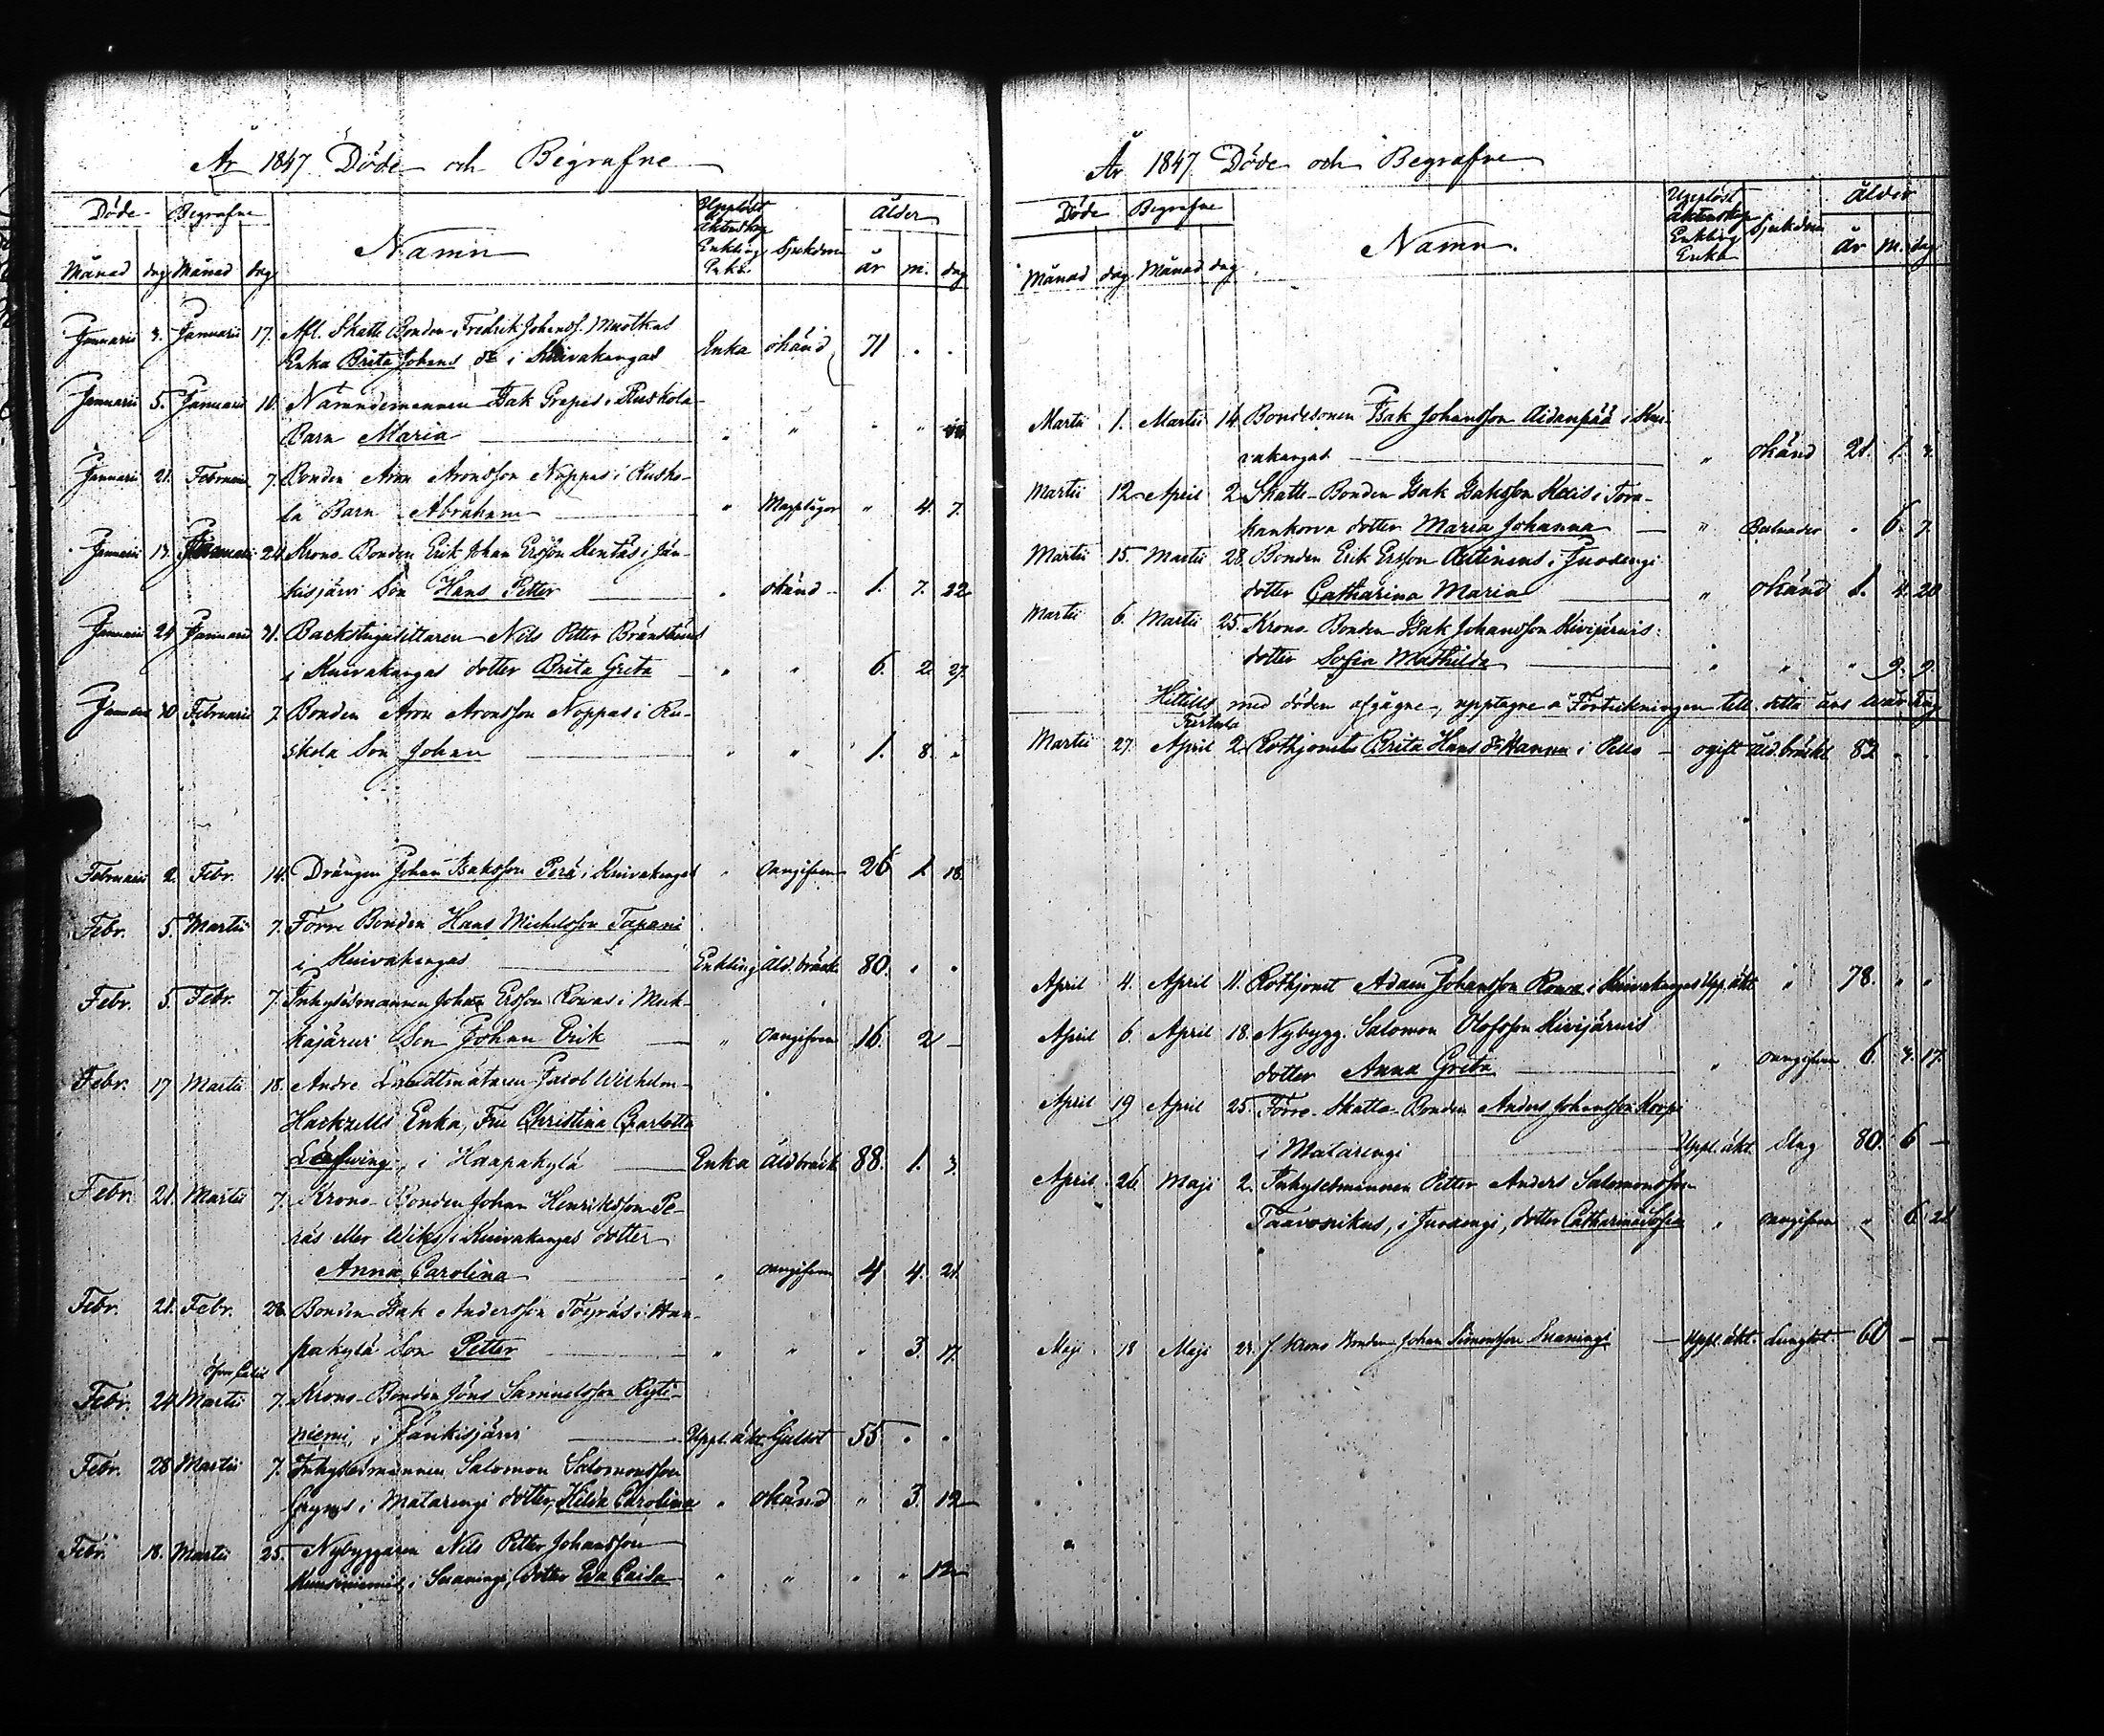 År 1847 Döde och Begrafne
Döde Begrafne Namn Upplöst äktenskap Enkling Enka Sjukdom ålder
Månad dag Månad dag år m. dag
Januarii 3. Januarii 17. Afl. Skatte Bonden Fredrik Johanss. Muotkas
Enka Brita Johans dr i Kuivakangas Enka okänd 71 . .
Januarii 5. Januarii 16. Nämndemannen Isak Grapes i Ruskola
Barn Maria " " " "
Januarii 21. Februarii 7. Bonden Aron Aronsson Noppas i Rusko-
la Barn Abraham " Magplågor " 4. 7.
Januarii 13. Januarii 24. Krono Bonden Erik Johan Ersson Kentäs i Jän-
kisjärvi Son Hans Petter " okänd 1. 7. 22
Januarii 24 Januarii 31. Backstugusittaren Nils Petter Brännströms
i Kuivakangas dotter Brita Greta " " 6. 2. 27.
Januarii 30 Februarii 7. Bonden Aron Aronsson Noppas i Ru-
skola Son Johan " " 1. 8. "
Februarii 2. Febr. 14. Drängen Johan Isaksson Perä i Kuivakangas " oangifven 26 1. 18.
Febr. 5. Martii 7. Förre Bonden Hans Michelsson Tapani
i Kuivakangas Enkling Åld. bräck. 80. . .
Febr. 5. Febr. 7. Inhysesmannen Johan Ersson Rovas i Muk-
kajärvi Son Johan Erik " oangifven 16. 2 –
Febr. 17 Martii 18. Andre Landtmätaren Jacob Wilhelm
Hackzells Enka, Fru Christina Charlotta
i Haapakylä Enka Åld bräck 88. 1. 3.
Febr. 21. Martii 7. Krono-Bonden Johan Henriksson Pe-
räs eller i Kuivakangas dotter
Anna Carolina " oangifven 4 4. 21.
Febr. 21. Febr. 28. Bonden Isak Andersson Töyräs i Haa-
pakylä Son Petter " " " 3. 17.
Febr. 24 Martii 7. Krono-Bonden Jöns Samuelsson Kyti-
niemi, i Jänkisjärvi Uppl. äkt. Gulsot 55 . .
Febr. 28 Martii 7. Inhysesmannen Salomon Salomonsson
i Matarengi dotter, Hilda Carolina " okänd " 3. 12
Febr. 18. Martii 25. Nybyggaren Nils Petter Johansson
i Svanengi, dotter Eva Caisa " " " " 12
År 1847 Döde och Begrafne
Döde Begrafne Namn. Upplöst äktenskap Enkling Enka Sjukdom ålder
Månad dag. Månad dag år m. dag
Martii 1. Martii 14. Bondesonen Isak Johansson Aidanpää i Kui-
vakangas " okänd 21. 1. 3.
Martii 12 April 2 Skatte-Bonden Isak Isaksson Keis i Tora-
kankorva dotter Maria Johanna " " 6. 7.
Martii 15. Martii 28. Bonden Erik Ersson i Juoxengi
dotter Catharina Maria " okänd 1. 4. 20
Martii 6. Martii 25. Krono-Bonden Isak Johansson Kivijärvis
dotter Sofia Mathilda " " " 9. 9.
Hittills med döden afgågne, upptagne å Förteckningen till detta års
Turtula
Martii 27. April 2 Rothjonet Brita Hans dr Hannu i Pello – ogift åld.bräckl 82 . .
April 4. April 11. Rothjonet Adam Johansson Rova i Kuivakangas Upp. äkt. " 78. " "
April 6. April 18. Nybygg. Salomon Olofsson Kivijärvis
dotter Anna Greta " oangifven 6. 3. 17.
April 19 April 25. Förre Skatte-Bonden Anders Johansson Korpi
i Matarengi Uppl. äkt. Slag 80. 6 –
April 26. Maji 2. Inhysesmannen Petter Anders Salomonsson
Taavonikus, i Juoxengi, dotter Catharina Sofia " oangifven " 6 21
Maji 18 Maji 23. f. Krono Bonden Johan Simonsson – Uppl. äkt. Lungsot 60 – –